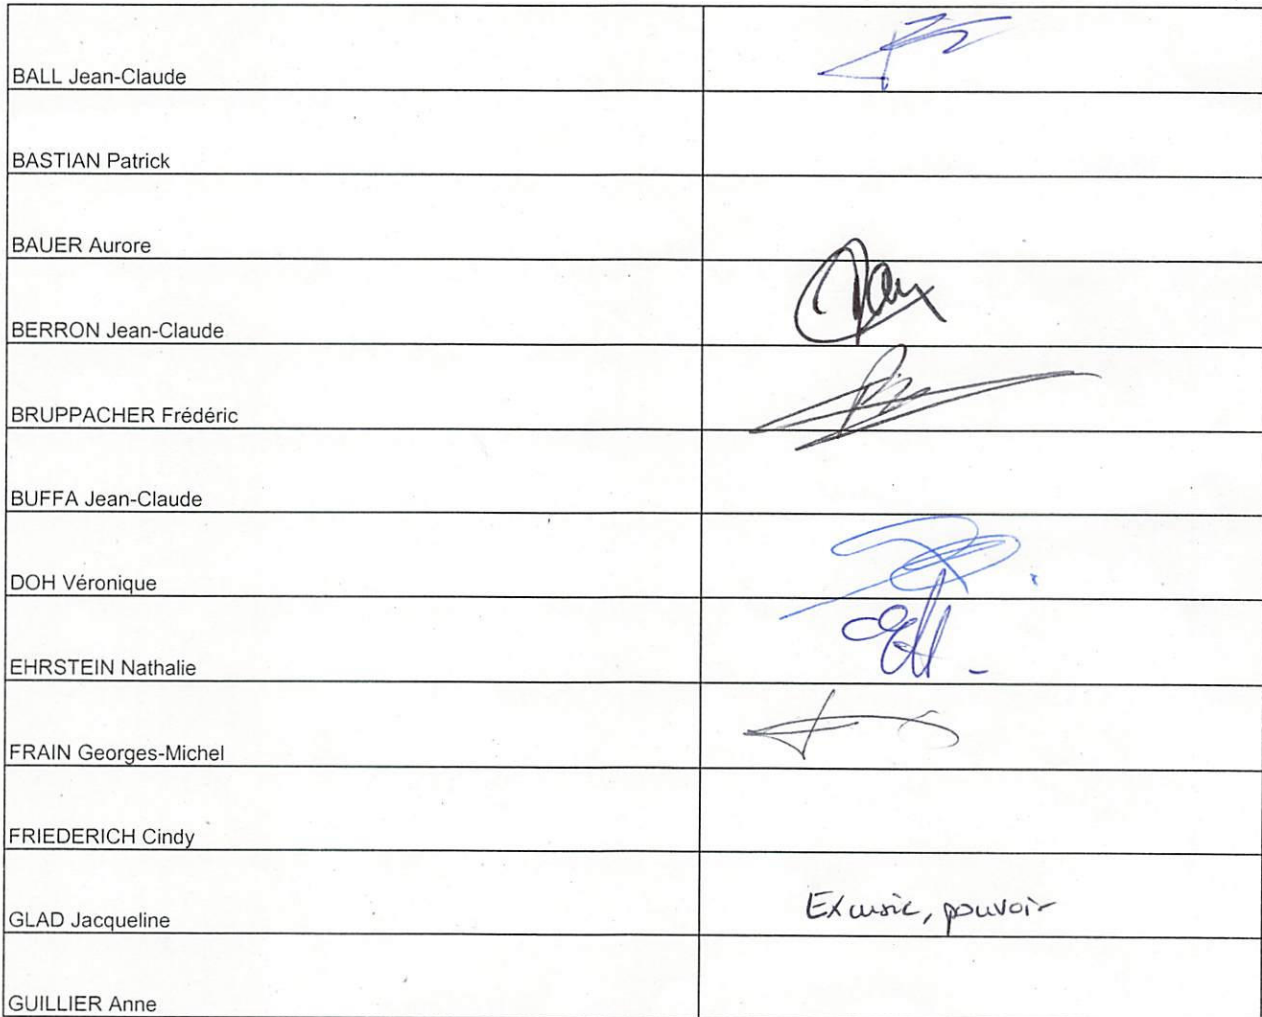 BALL Jean-Claude
BASTIAN Patrick
BAUER Aurore
BERRON Jean-Claude
BRUPPACHER Frédéric
BUFFA Jean-Claude
DOH Véronique
EHRSTEIN Nathalie
FRAIN Georges-Michel
FRIEDERICH Cindy
GLAD Jacqueline
Excusée, pouvoir
GUILLIER Anne